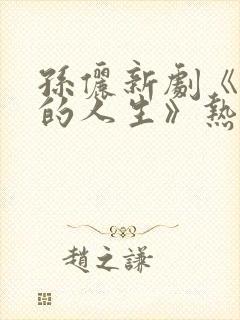 孫儷新劇《
的人生》熱
趙之謙